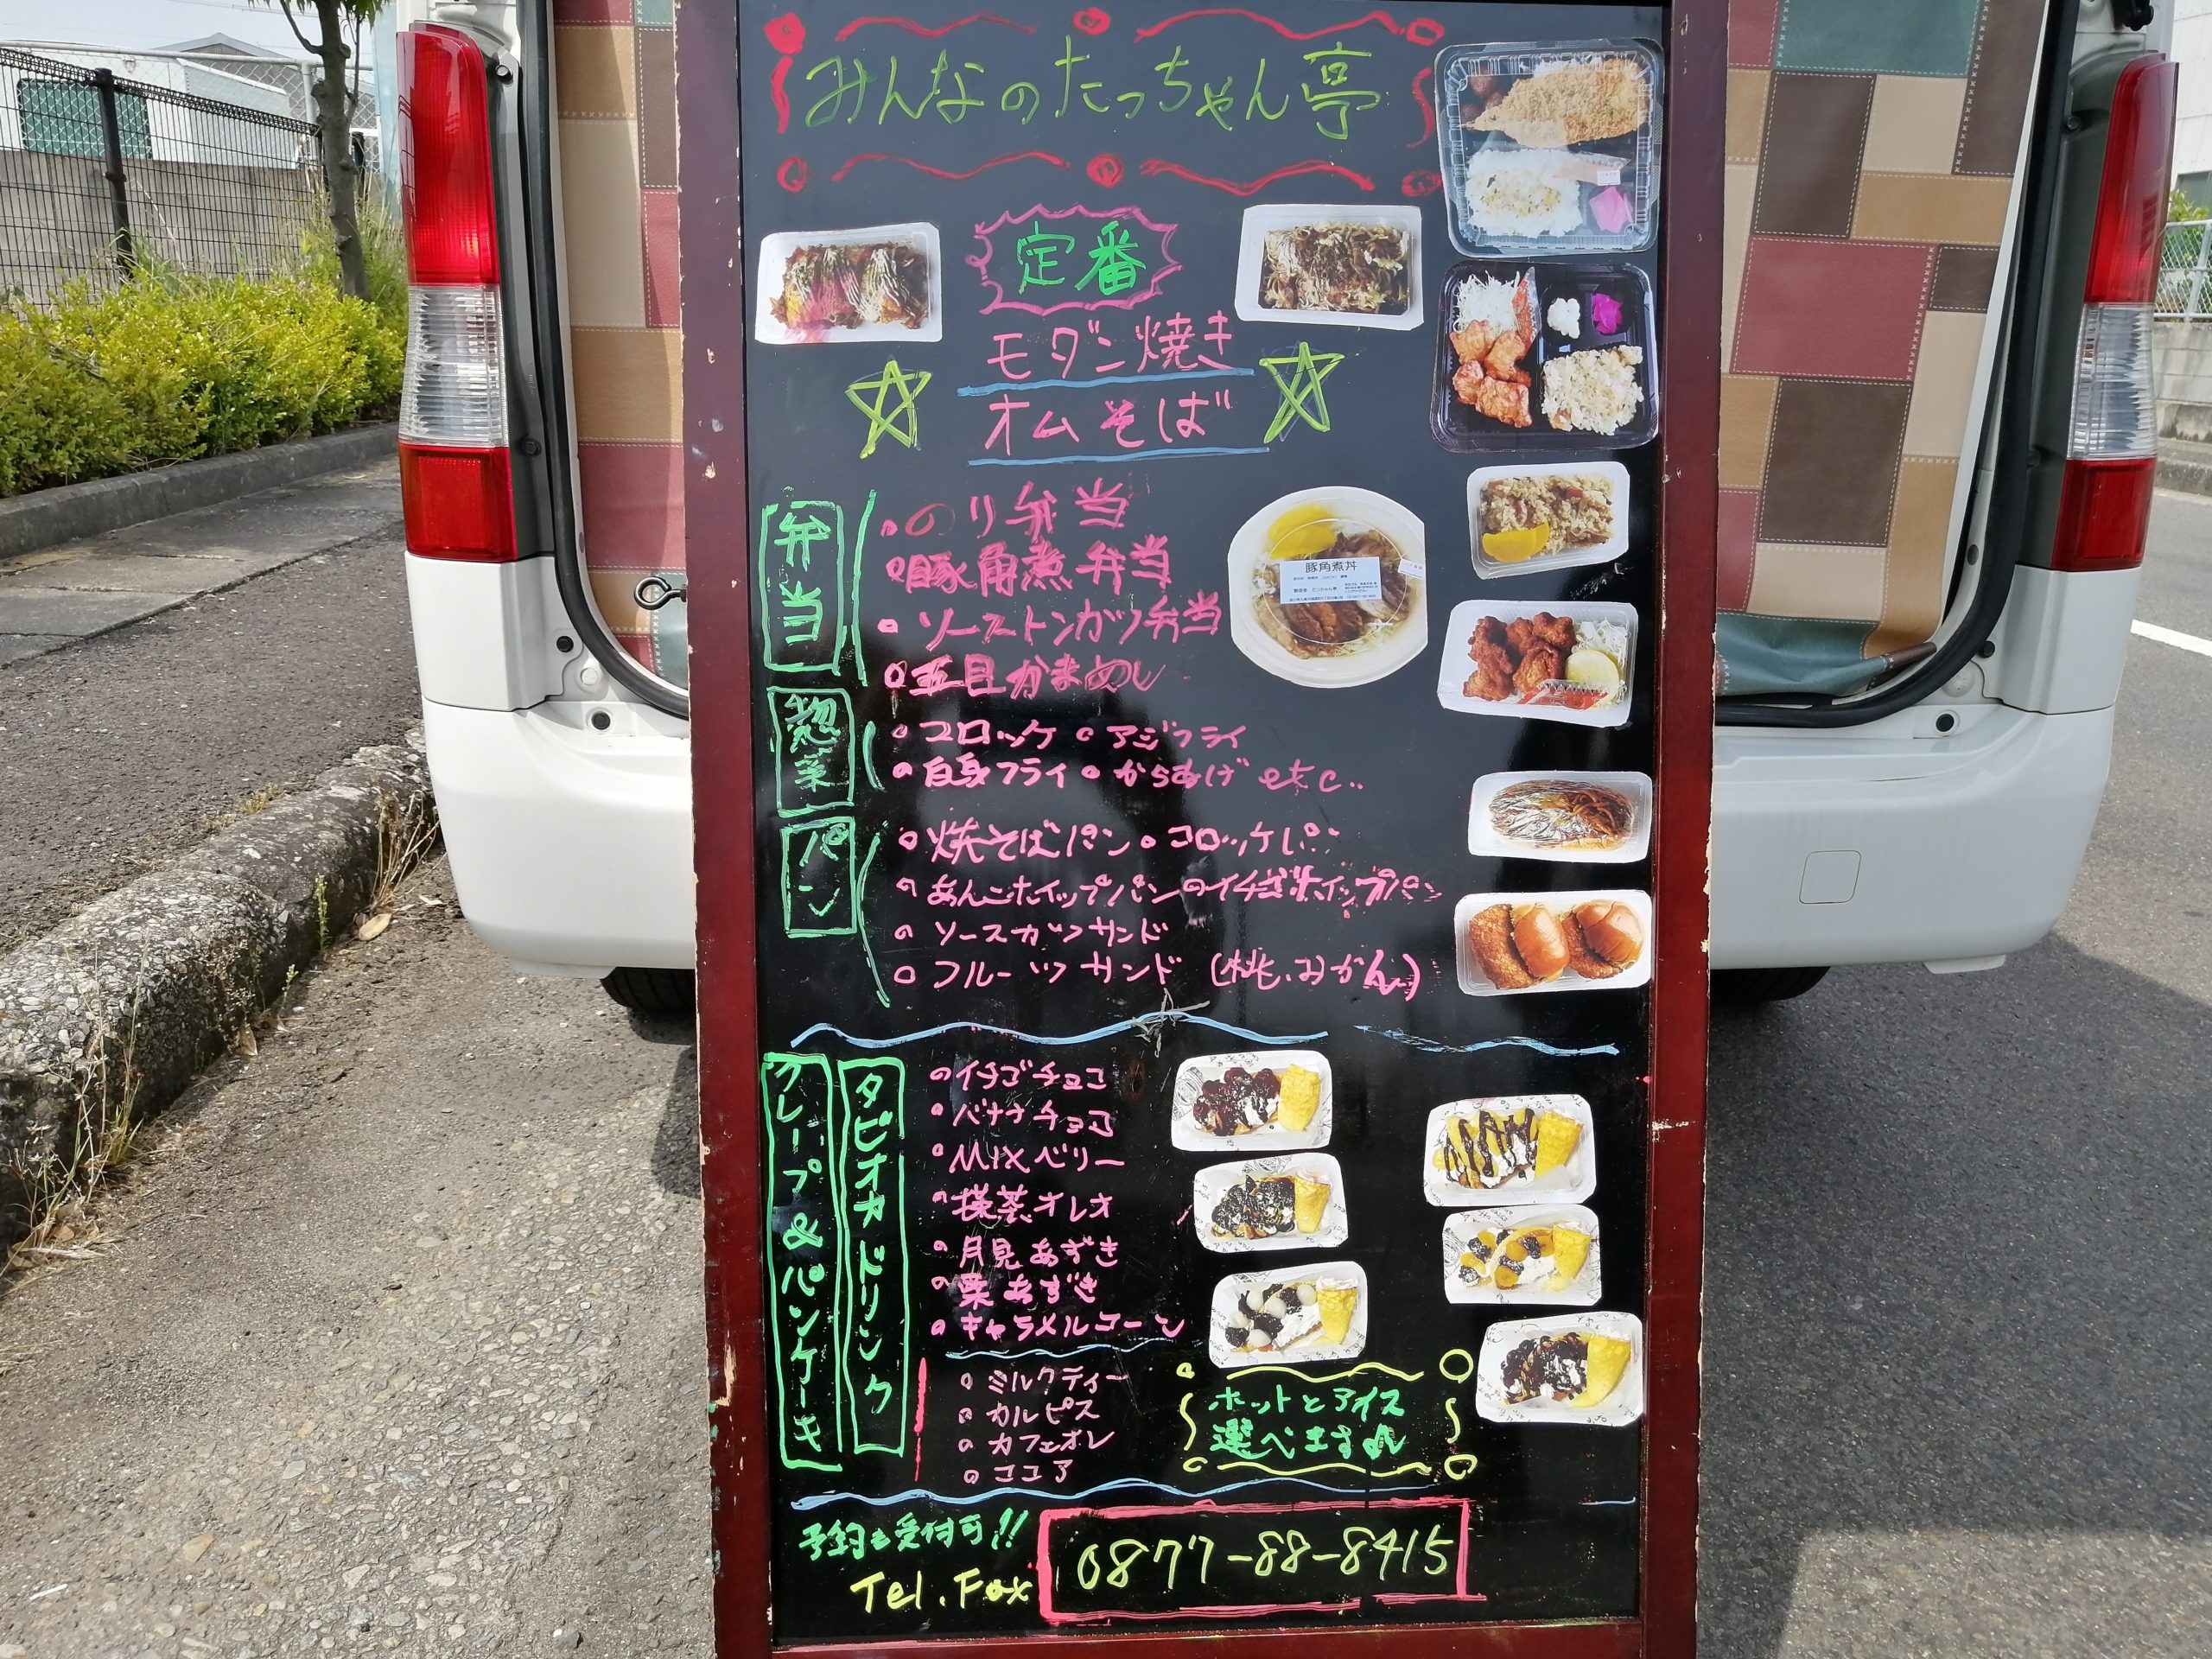 みんなのたっちゃん亭
定番
モダン焼き
オムそば
弁当
のり弁当
豚角煮弁当
ソーストンカツ弁当
五目かまめし
豚角煮丼
惣菜
コロッケ アジフライ
白身フライ からあげ etc..
パン
焼そばパン コロッケパン
あんこホイップパン イチゴホイップパン
ソースカツサンド
フルーツサンド (桃、みかん)
クレープ&パンケーキ
タピオカドリンク
イチゴチョコ
バナナチョコ
MIXベリー
抹茶オレオ
月見あずき
栗あずき
キャラメルコーン
ミルクティー
カルピス
カフェオレ
ココア
ホットとアイス
選べます♪
予約も受付可!!
Tel.Fax 0877-88-8415